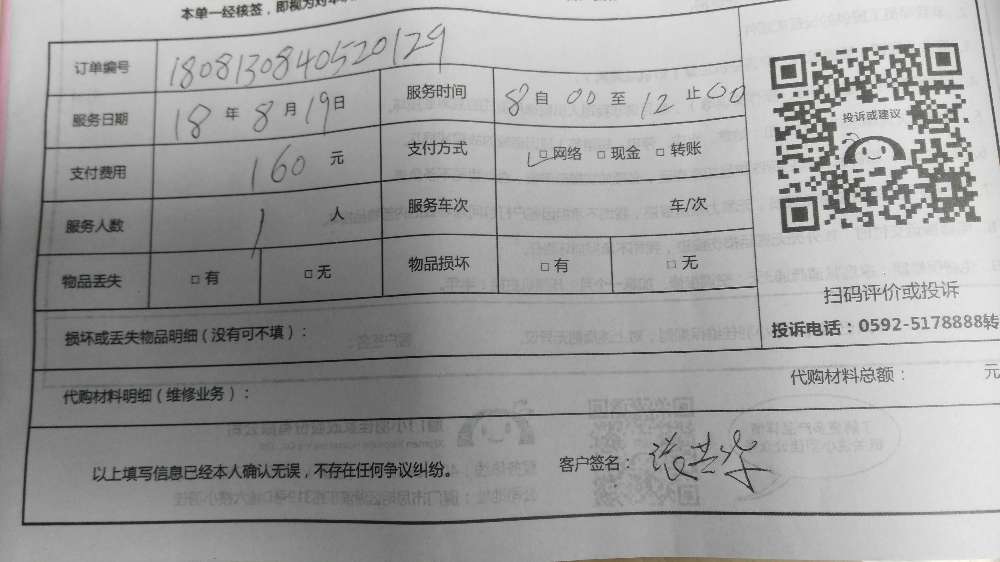 本单一经核签，即视为对本
订单编号 1808130840520129
服务日期 18 年 8 月 19 日 服务时间 8 自 00 至 12 止 00
支付费用 160 元 支付方式 ✓□ 网络 □ 现金 □ 转账
服务人数 1 人 服务车次 车/次
物品丢失 □ 有 □ 无 物品损坏 □ 有 □ 无
投诉或建议
扫码评价或投诉
投诉电话：0592-5178888转
损坏或丢失物品明细（没有可不填）：
代购材料明细（维修业务）： 代购材料总额： 元
以上填写信息已经本人确认无误，不存在任何争议纠纷。 客户签名：